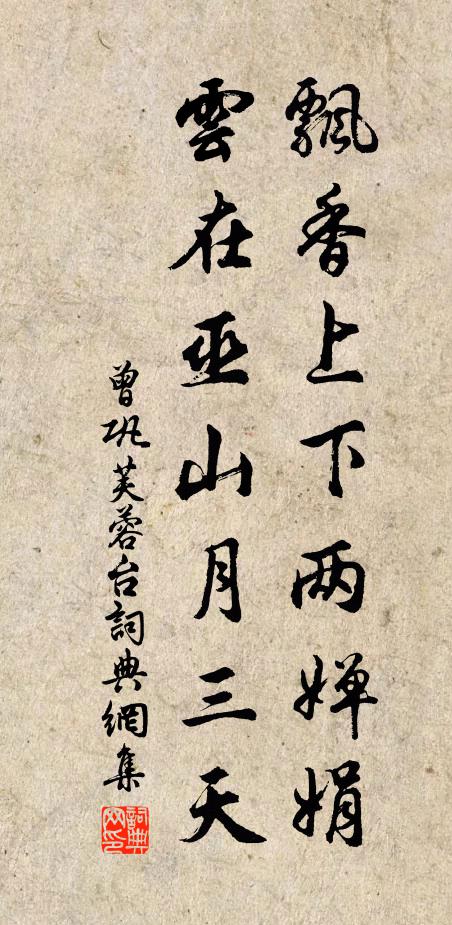 飄香上下两嬋娟
雲在巫山月三天
曾巩芙蓉台詞典網集
詞典網印